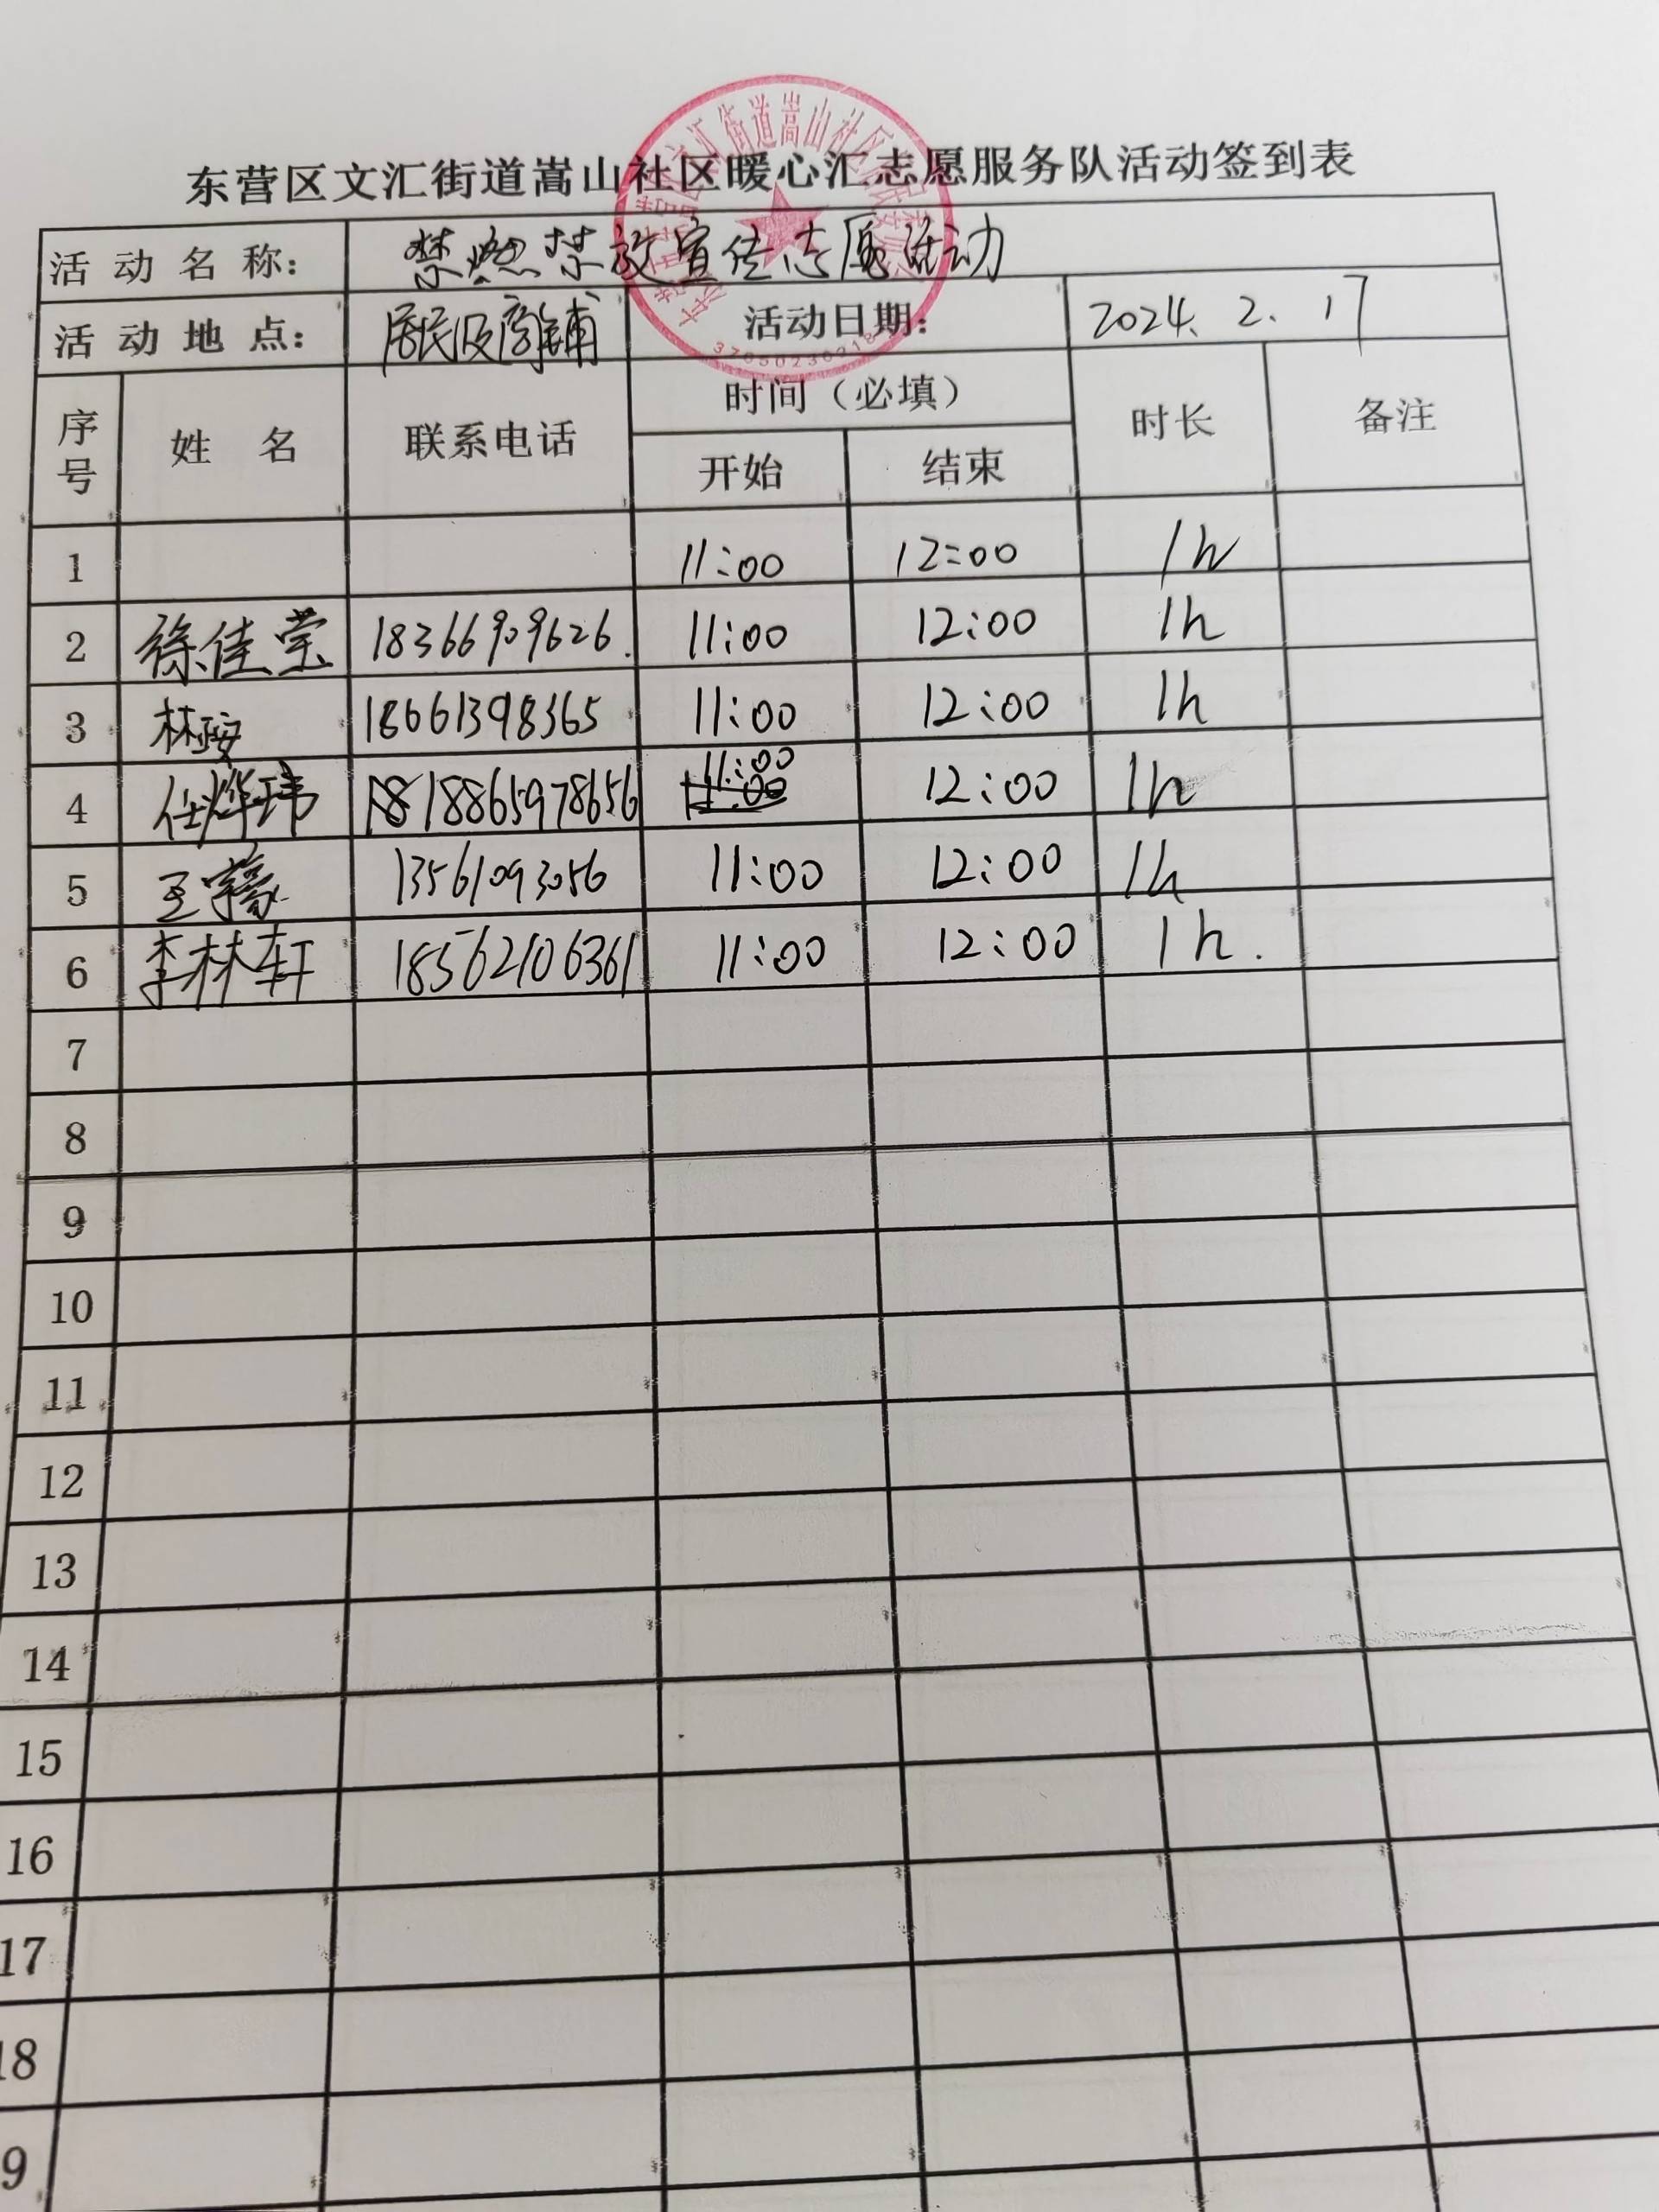 东营区文汇街道嵩山社区暖心汇志愿服务队活动签到表
活动名称: 禁燃禁放宣传志愿活动
活动地点: 居民及商铺 活动日期: 2024. 2. 17
序号 姓名 联系电话 时间（必填） 时长 备注
开始 结束
1 11:00 12:00 1h
2 徐佳莹 18366909626. 11:00 12:00 1h
3 林 18661398365 11:00 12:00 1h
4 任烨玮 18865978656 11:00 12:00 1h
5 王 13561093056 11:00 12:00 1h
6 李林轩 18562106361 11:00 12:00 1h.
7
8
9
10
11
12
13
14
15
16
17
18
9